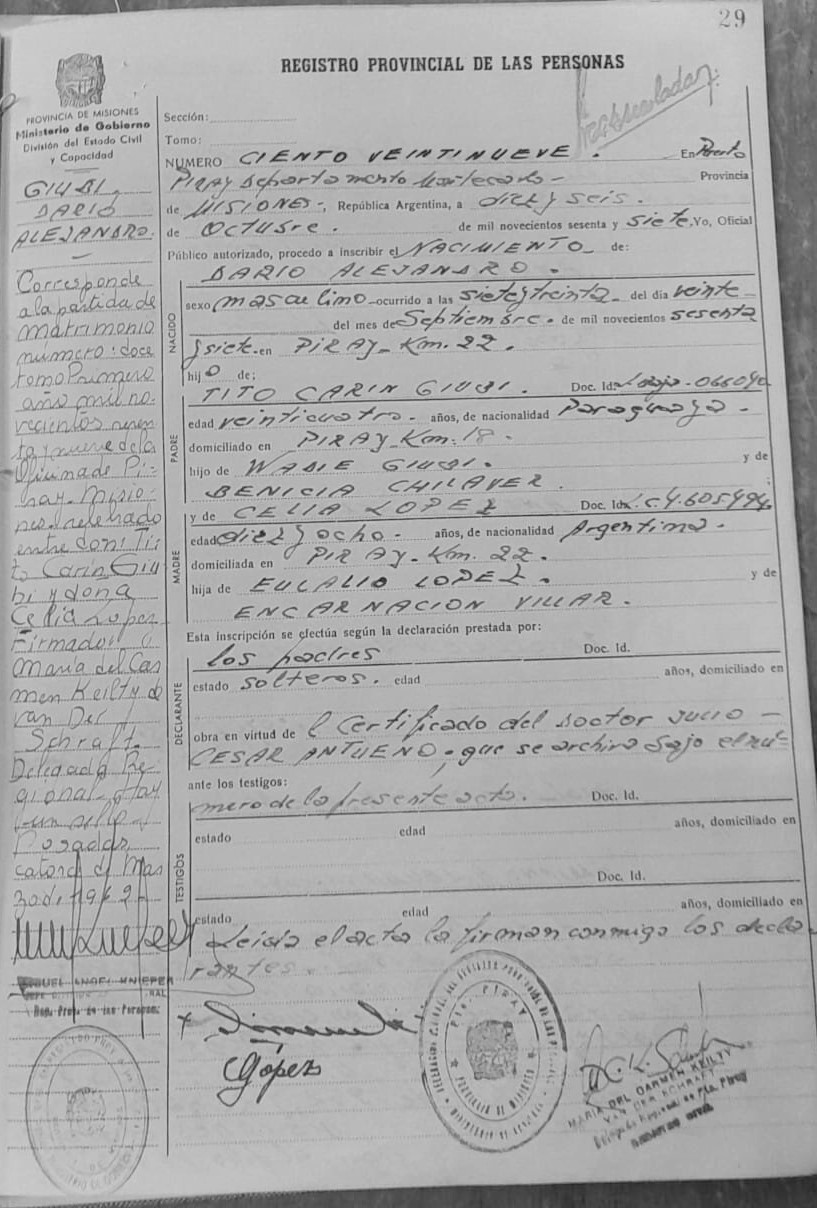 29
REGISTRO PROVINCIAL DE LAS PERSONAS
PROVINCIA DE MISIONES
Ministerio de Gobierno
División del Estado Civil
y Capacidad
Sección:
Tomo:
NUMERO CIENTO VEINTINUEVE. En Puerto
PIRAY Departamento Montecarlo - Provincia
de MISIONES-, República Argentina, a diez y seis.
de Octubre. de mil novecientos sesenta y siete, Yo, Oficial
Público autorizado, procedo a inscribir el NACIMIENTO de:
DARIO ALEJANDRO.
NACIDO
sexo masculino ocurrido a las siete y treinta del día veinte
del mes de Septiembre. de mil novecientos sesenta
y siete. en PIRAY - Km. 22.
hijo de:
PADRE
TITO CARIN GIUBI. Doc. Id.
edad veinticuatro. años, de nacionalidad Paraguaya.
domiciliado en PIRAY - Km: 18.
hijo de WADIE GIUBI. y de
BENICIA CHILAVER.
MADRE
y de CELIA LOPEZ Doc. Id. L.C. 4.605.494
edad diez y ocho - años, de nacionalidad Argentina.
domiciliada en PIRAY - Km. 22.
hija de EULALIO LOPEZ. y de
ENCARNACION VILLAR.
Esta inscripción se efectúa según la declaración prestada por:
DECLARANTE
los padres Doc. Id.
estado solteros. edad años, domiciliado en
obra en virtud de l Certificado del Doctor JULIO -
CESAR ANTUENO. que se archiva bajo el nú-
ante los testigos:
mero de la presente acta. Doc. Id.
TESTIGOS
estado edad años, domiciliado en
Doc. Id.
estado edad años, domiciliado en
Leida el acta la firman conmigo los decla-
rantes.
López
GIUBI.
DARIO
ALEJANDRO.
Corresponde
a la partida de
matrimonio
número: doce
tomo Primero
año mil no-
vecientos sesen
ta y nueve de la
Oficina de Pi-
ray - Misio-
nes. celebrado
entre don: Ti
to Carin Giu
bi y doña
Celia Lopez
Firmado:
Maria del Car
men Keilty de
Van Der
Schraft.
Delegada Re-
gional - Hay
un sello -
Posadas,
catorce de Mar
zo de 1969 -
MIGUEL ANGEL KNIEPER
PCIA. PIRAY
PROVINCIA DE MISIONES
MARIA DEL CARMEN KEILTY
VAN DER SCHRAFT
Delegada Regional de Pto. Piray